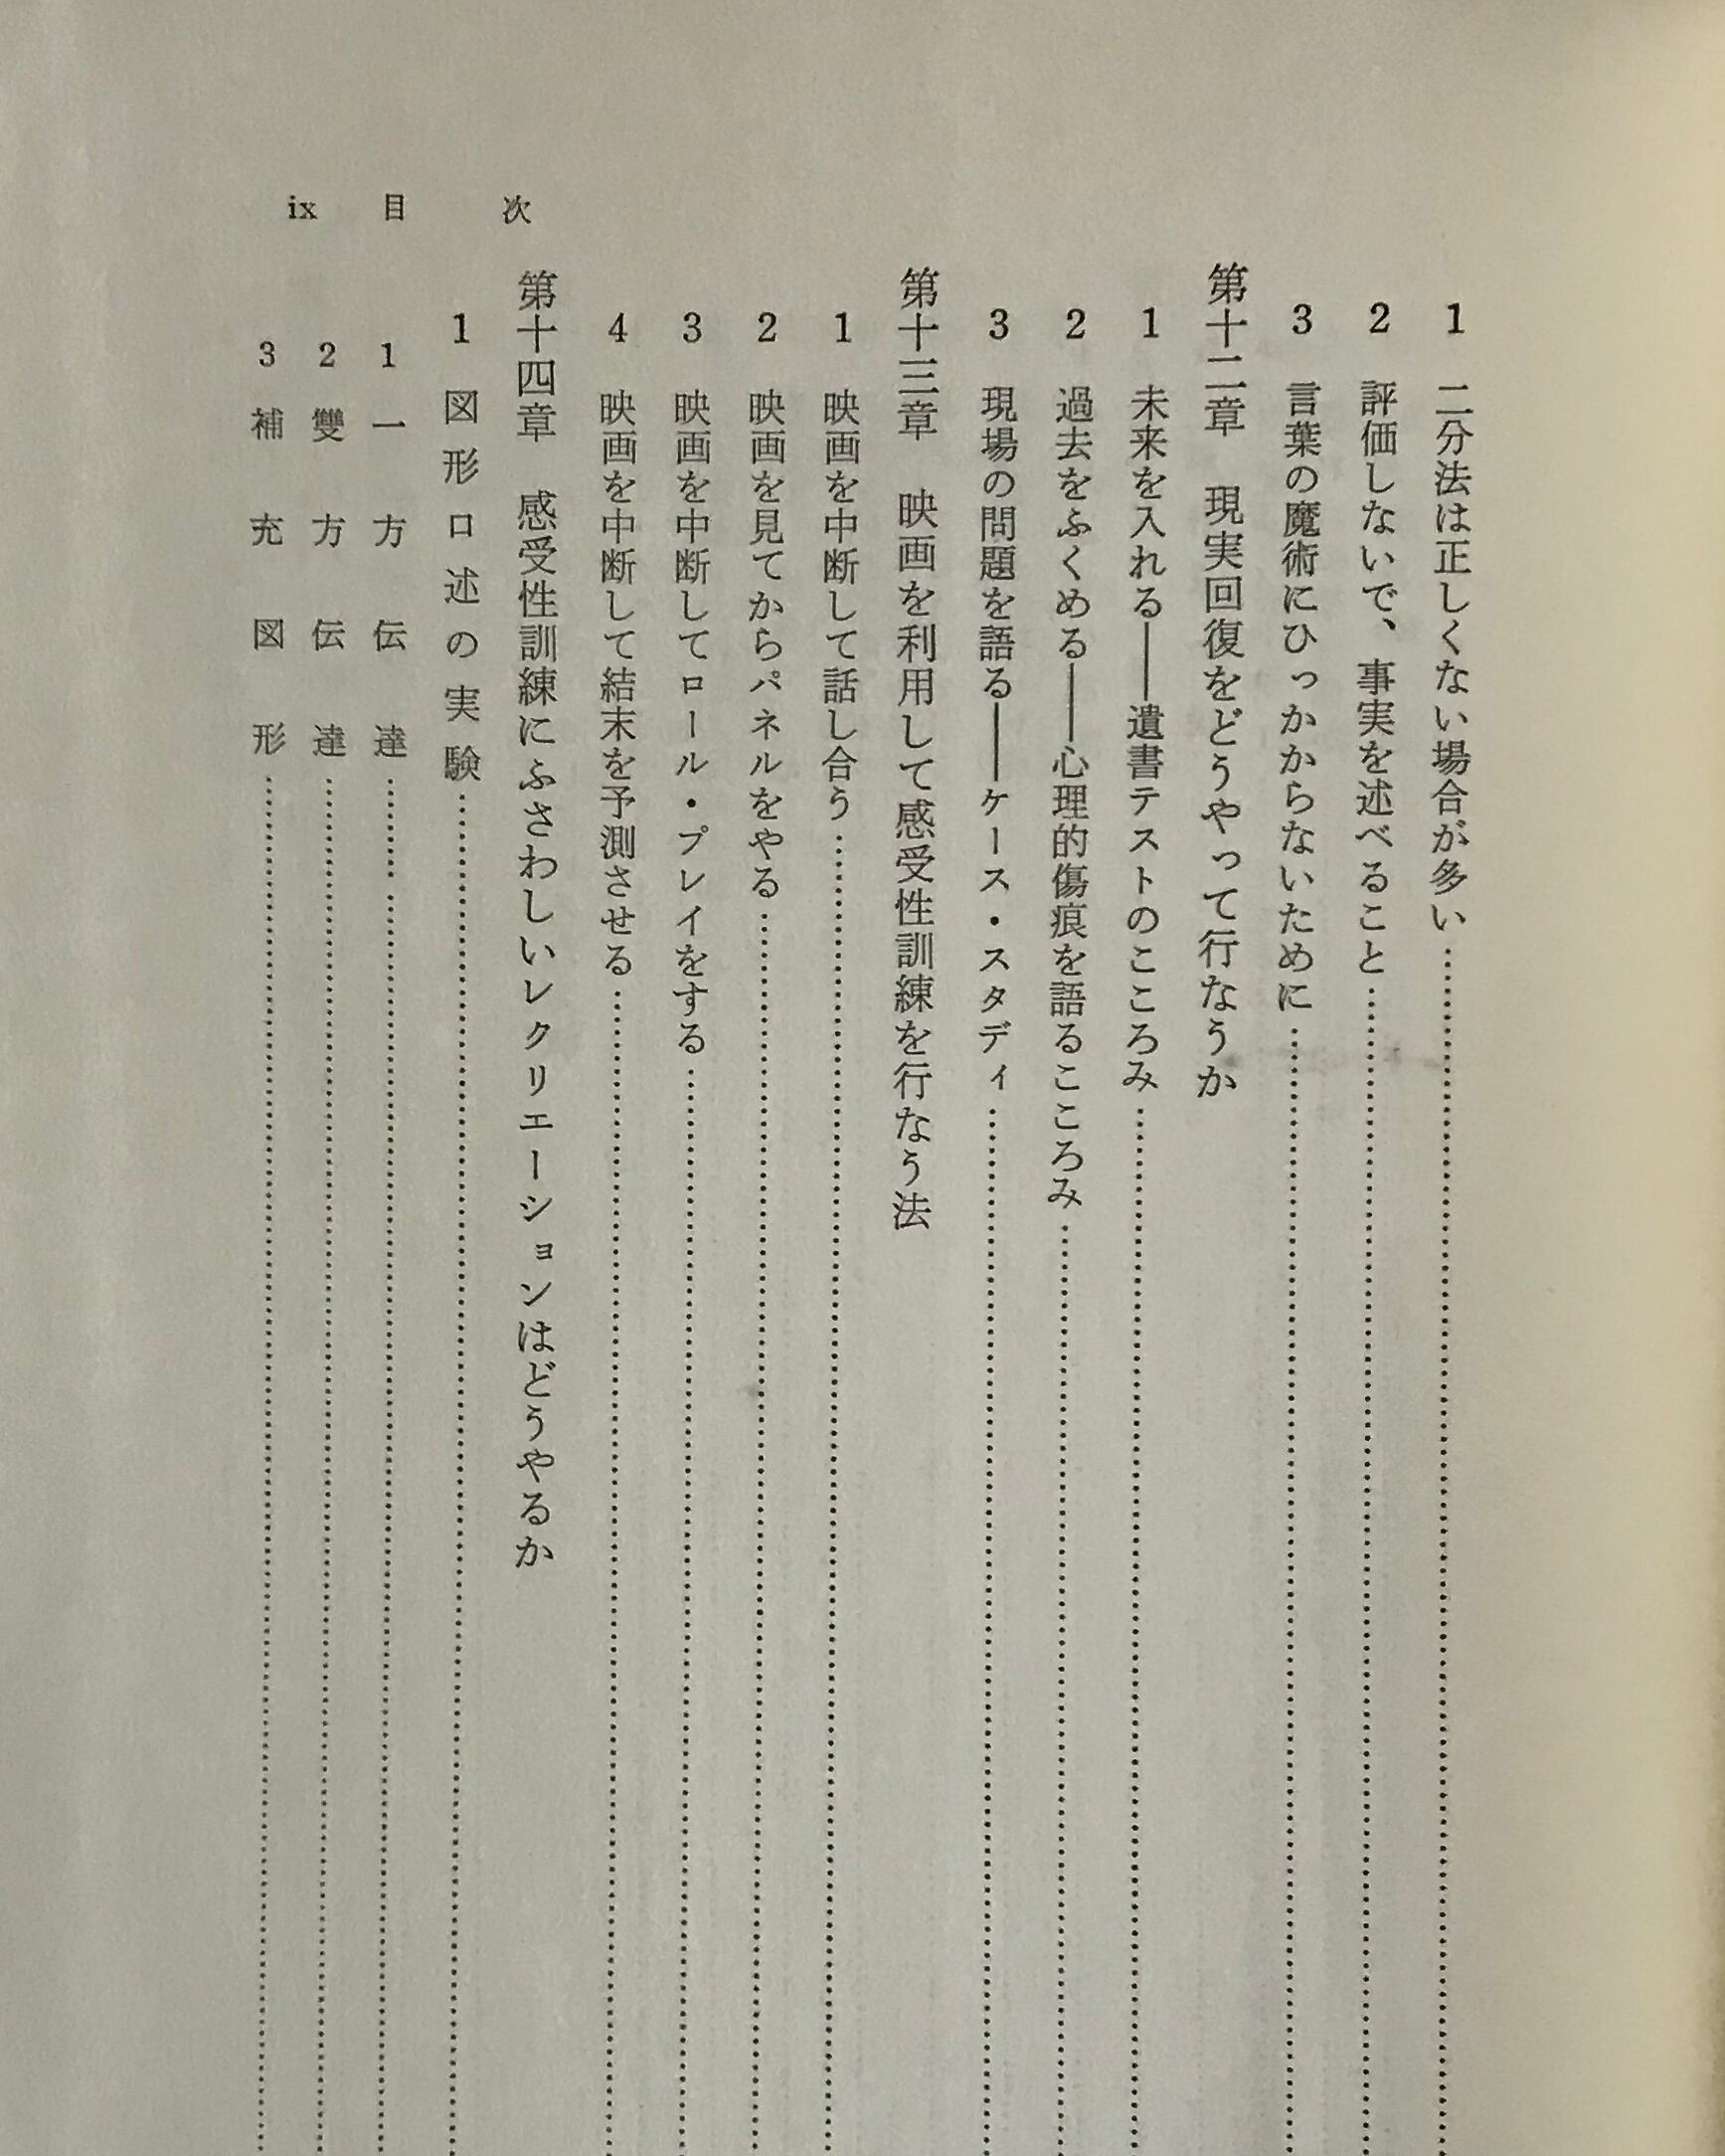 ix 目次
1 二分法は正しくない場合が多い
2 評価しないで、事実を述べること
3 言葉の魔術にひっかからないために
第十二章 現実回復をどうやって行なうか
1 未来を入れる――遺書テストのこころみ
2 過去をふくめる――心理的傷痕を語るこころみ
3 現場の問題を語る――ケース・スタディ
第十三章 映画を利用して感受性訓練を行なう法
1 映画を中断して話し合う
2 映画を見てからパネルをやる
3 映画を中断してロール・プレイをする
4 映画を中断して結末を予測させる
第十四章 感受性訓練にふさわしいレクリエーションはどうやるか
1 図形口述の実験
1 一方伝達
2 雙方伝達
3 補充図形